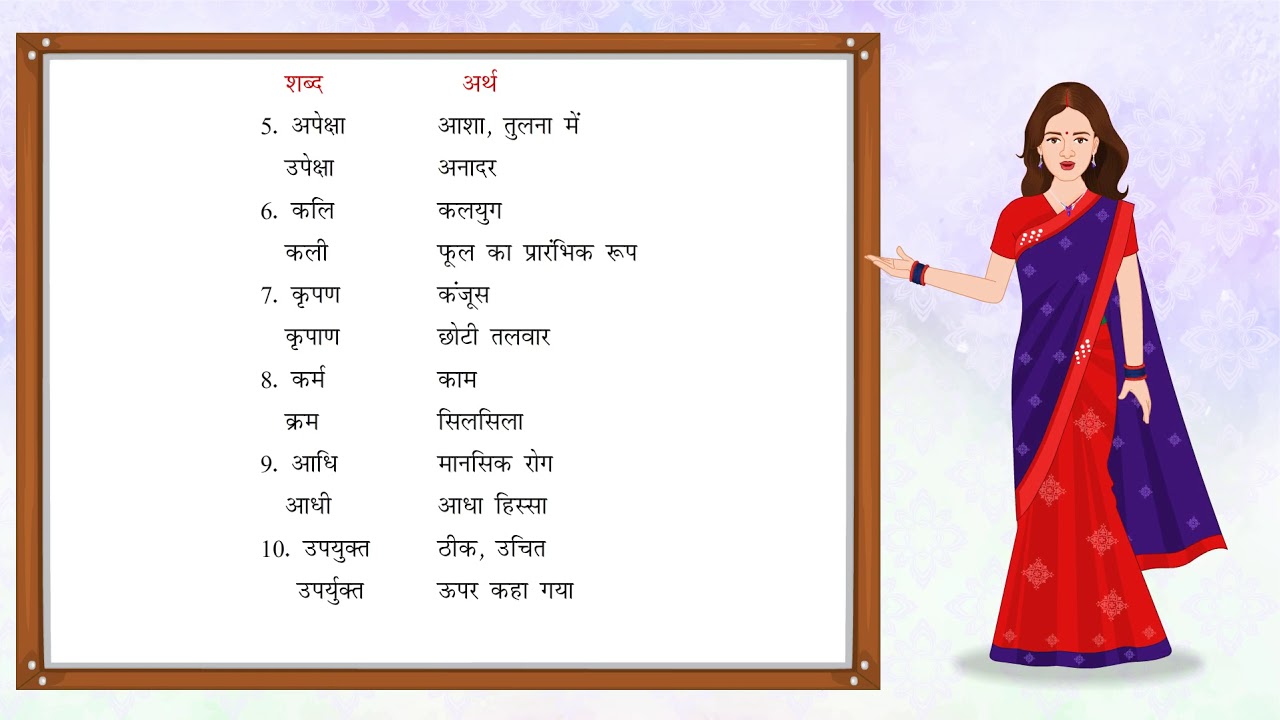 शब्द अर्थ
5. अपेक्षा आशा, तुलना में
उपेक्षा अनादर
6. कलि कलयुग
कली फूल का प्रारंभिक रूप
7. कृपण कंजूस
कृपाण छोटी तलवार
8. कर्म काम
क्रम सिलसिला
9. आधि मानसिक रोग
आधी आधा हिस्सा
10. उपयुक्त ठीक, उचित
उपर्युक्त ऊपर कहा गया